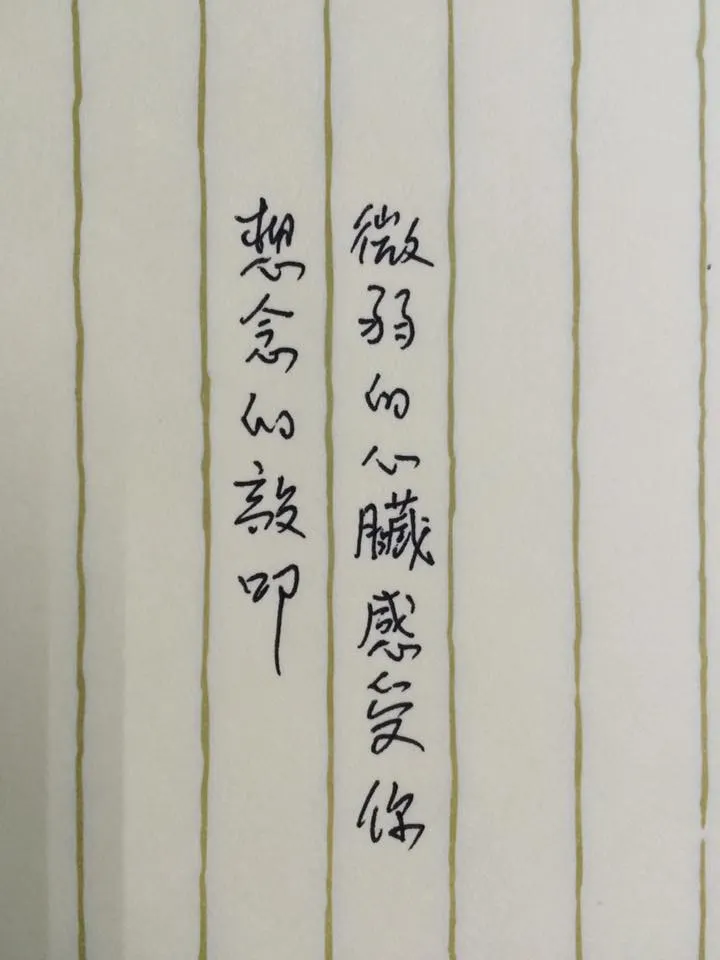 微弱的心臟感受你
想念的敲叩